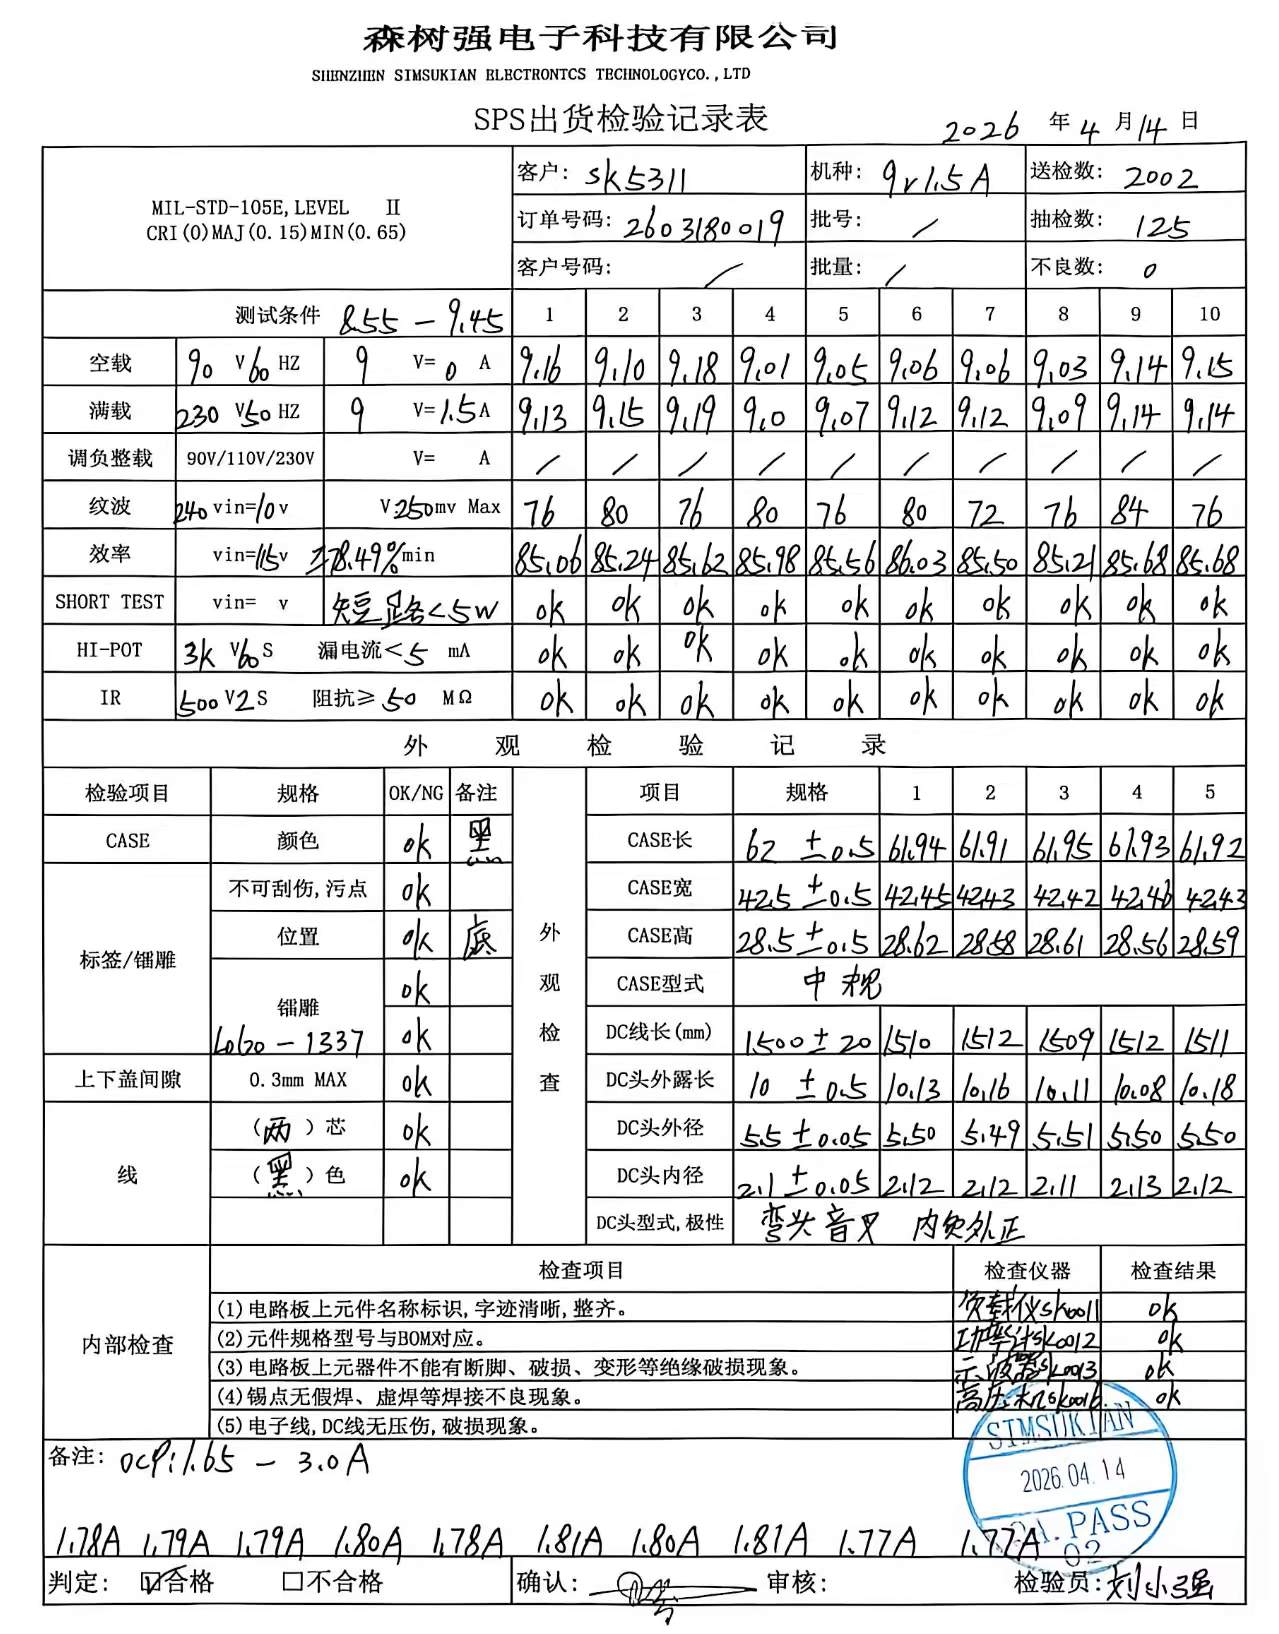 森树强电子科技有限公司
SHENZHEN SIMSUKIAN ELECTRONTCS TECHNOLOGYCO.,LTD
SPS出货检验记录表
2026 年 4 月 14 日
MIL-STD-105E,LEVEL Ⅱ
CRI(0)MAJ(0.15)MIN(0.65)
客户: SK5311 机种: 9V1.5A 送检数: 2002
订单号码: 2603180019 批号: / 抽检数: 125
客户号码: / 批量: / 不良数: 0
测试条件 8.55-9.45 1 2 3 4 5 6 7 8 9 10
空载 90 V 60 HZ 9 V= 0 A 9.16 9.10 9.18 9.01 9.05 9.06 9.06 9.03 9.14 9.15
满载 230 V 50 HZ 9 V= 1.5 A 9.13 9.15 9.19 9.0 9.07 9.12 9.12 9.09 9.14 9.14
调负整载 90V/110V/230V V= A / / / / / / / / / /
纹波 240 vin=10v V 250mv Max 76 80 76 80 76 80 72 76 84 76
效率 vin=115v ≥78.49%min 85.06 85.24 85.62 85.98 85.56 86.03 85.50 85.21 85.68 85.68
SHORT TEST vin= v 短路<5W ok ok ok ok ok ok ok ok ok ok
HI-POT 3K V 60 S 漏电流< 5 mA ok ok ok ok ok ok ok ok ok ok
IR 500 V 2 S 阻抗≥ 50 MΩ ok ok ok ok ok ok ok ok ok ok
外观检验记录
检验项目 规格 OK/NG 备注 项目 规格 1 2 3 4 5
CASE 颜色 ok 黑 CASE长 62 ±0.5 61.94 61.91 61.95 61.93 61.92
不可刮伤,污点 ok CASE宽 42.5 ±0.5 42.45 42.43 42.42 42.46 42.43
标签/镭雕 位置 ok 底 外观检查 CASE高 28.5±0.5 28.62 28.58 28.61 28.56 28.59
镭雕 ok CASE型式 中规
-1337 ok DC线长(mm) 1500±20 1510 1512 1509 1512 1511
上下盖间隙 0.3mm MAX ok DC头外露长 10 ±0.5 10.13 10.16 10.11 10.08 10.18
线 (两)芯 ok DC头外径 5.5±0.05 5.50 5.49 5.51 5.50 5.50
(黑)色 ok DC头内径 2.1±0.05 2.12 2.12 2.11 2.13 2.12
DC头型式,极性 弯头音叉 内负外正
内部检查 检查项目 检查仪器 检查结果
(1)电路板上元件名称标识,字迹清晰,整齐。 负载仪SK0011 ok
(2)元件规格型号与BOM对应。 功率计SK0012 ok
(3)电路板上元器件不能有断脚、破损、变形等绝缘破损现象。 示波器SK0013 ok
(4)锡点无假焊、虚焊等焊接不良现象。 高压机SK0016 ok
(5)电子线,DC线无压伤,破损现象。
备注: OCP:1.65-3.0A
SIMSUKIAN
2026.04.14
QA.PASS
02
1.78A 1.79A 1.79A 1.80A 1.78A 1.81A 1.80A 1.81A 1.77A 1.77A
判定: ☑合格 □不合格 确认: 审核: 检验员: 刘小强